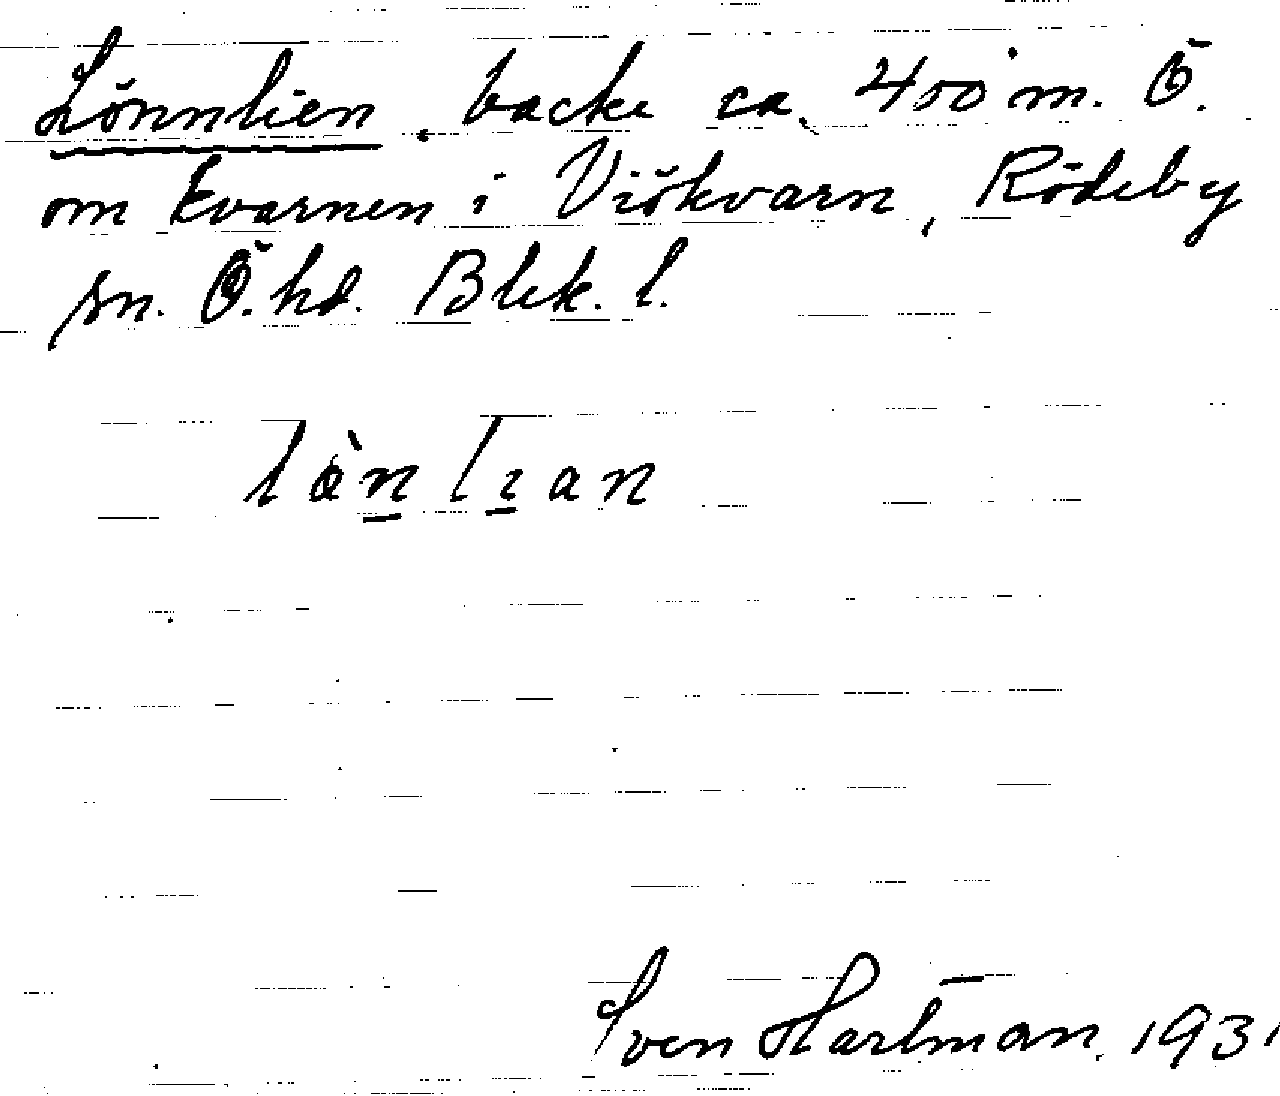 Lönnlien, backe ca. 400 m. Ö.
om kvarnen i Viökvarn, Rödeby
sn. Ö. hd. Blek. l.
lònlıan
Sven Hartman. 1931